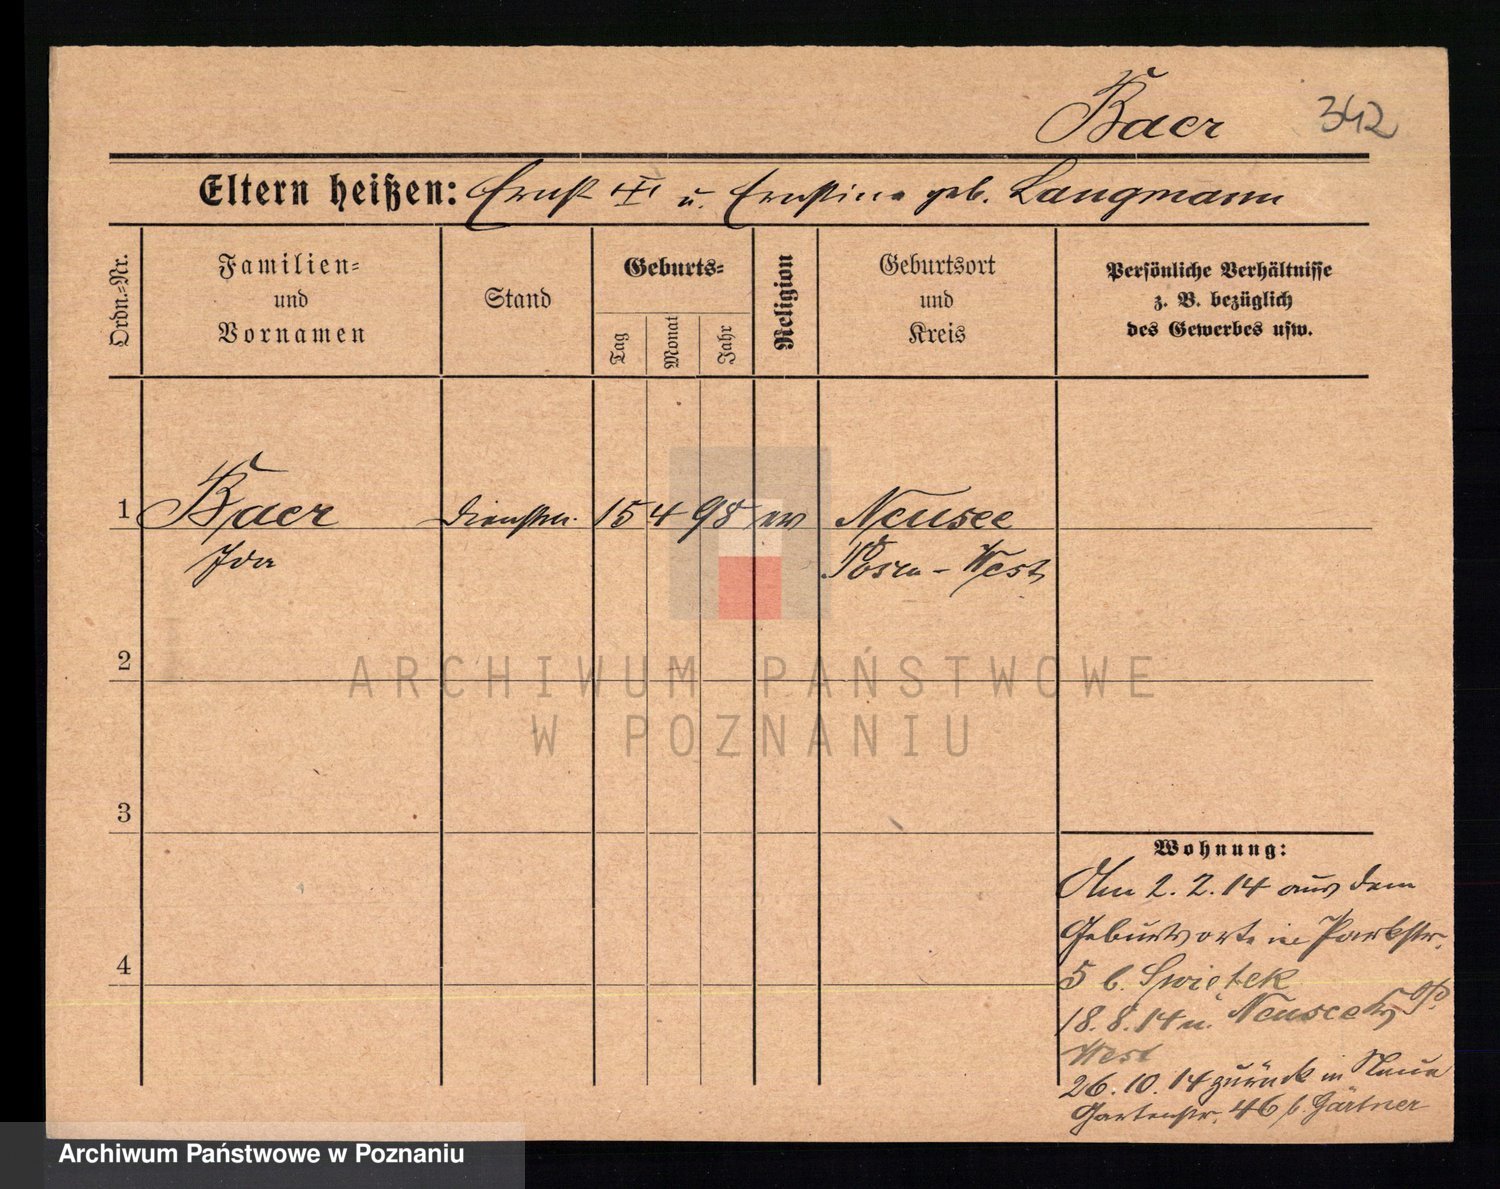 Baer 342
Eltern heißen: Ernst u. Ernstine geb. Langmann
Ordn.-Nr.
Familien-
und
Vornamen
Stand
Geburts-
Tag
Monat
Jahr
Religion
Geburtsort
und
Kreis
Persönliche Verhältnisse
z. B. bezüglich
des Gewerbes usw.
1 Baer Dienstm. 15 4 98 ev Neusee
Ida Posen-West
2
ARCHIWUM PAŃSTWOWE
W POZNANIU
3
4
Wohnung:
Am 2.2.14 aus dem
Geburtsorte in Parkstr.
5 b. Swietek
18.8.14 n. Neusee
West
26.10.14 zurück in Neue
Gartenstr. 46 b. Gärtner
Archiwum Państwowe w Poznaniu